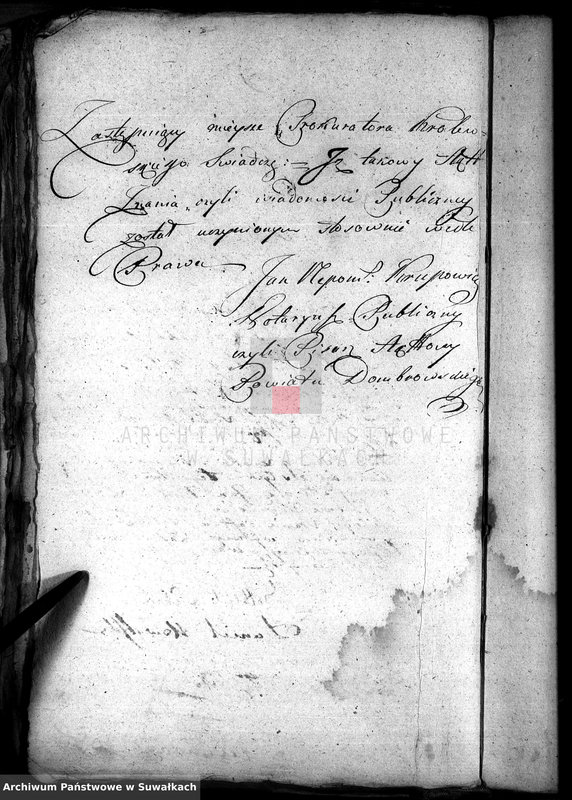 Zastępuiący mieysce Prokuratora Krolew-
skiego Swiadczę := Iż takowy Akt
Znania czyli wiadomości Publiczney
został uczyniony stosownie wedle
Prawa.
Jan Nepom. Krupowicz
Notaryusz Publiczny
czyli Pisarz Aktowy
Powiatu Dombrowskiego
ARCHIWUM PAŃSTWOWE
W SUWAŁKACH
Archiwum Państwowe w Suwałkach